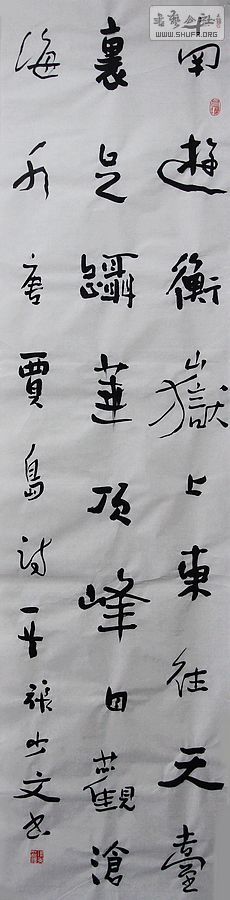 書藝公社
WWW.SHUFR.ORG
南遊衡嶽上東往天臺
裏足躡華頂峰目觀滄
海水唐賈島詩一首少文书